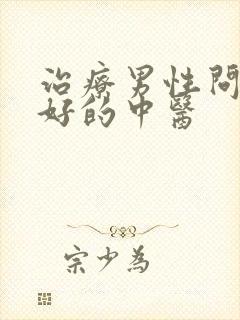 治療男性問
好的中醫
宗少為